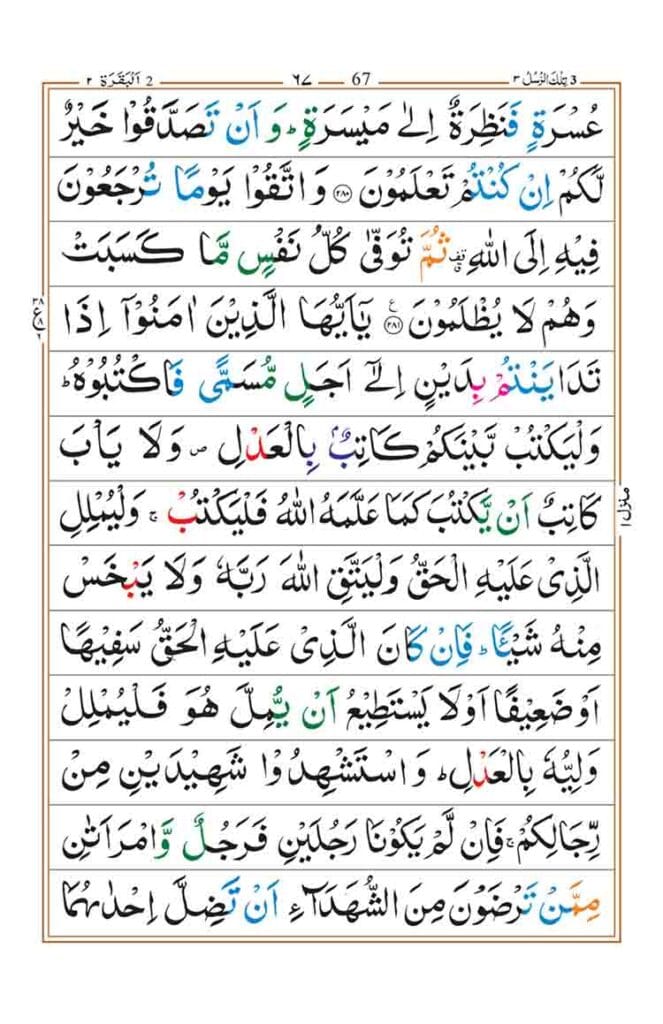 3 تِلْكَ الرُّسُلُ ٣
67 ٦٧
2 اَلْبَقَرَة ٢
عُسْرَةٍ فَنَظِرَةٌ اِلٰى مَيْسَرَةٍ ؕ وَ اَنْ تَصَدَّقُوْا خَيْرٌ
لَّكُمْ اِنْ كُنْتُمْ تَعْلَمُوْنَ ۝٢٨٠ وَ اتَّقُوْا يَوْمًا تُرْجَعُوْنَ
فِيْهِ اِلَى اللّٰهِ ثُمَّ تُوَفّٰى كُلُّ نَفْسٍ مَّا كَسَبَتْ
وَهُمْ لَا يُظْلَمُوْنَ ۝٢٨١ يٰۤاَيُّهَا الَّذِيْنَ اٰمَنُوْۤا اِذَا
تَدَايَنْتُمْ بِدَيْنٍ اِلٰۤى اَجَلٍ مُّسَمًّى فَاكْتُبُوْهُ ؕ
وَلْيَكْتُبْ بَّيْنَكُمْ كَاتِبٌۢ بِالْعَدْلِ ۪ وَلَا يَاْبَ
كَاتِبٌ اَنْ يَّكْتُبَ كَمَا عَلَّمَهُ اللّٰهُ فَلْيَكْتُبْ ۚ وَلْيُمْلِلِ
الَّذِىْ عَلَيْهِ الْحَقُّ وَلْيَتَّقِ اللّٰهَ رَبَّهٗ وَلَا يَبْخَسْ
مِنْهُ شَيْـًٔا ؕ فَاِنْ كَانَ الَّذِىْ عَلَيْهِ الْحَقُّ سَفِيْهًا
اَوْ ضَعِيْفًا اَوْ لَا يَسْتَطِيْعُ اَنْ يُّمِلَّ هُوَ فَلْيُمْلِلْ
وَلِيُّهٗ بِالْعَدْلِ ؕ وَاسْتَشْهِدُوْا شَهِيْدَيْنِ مِنْ
رِّجَالِكُمْ ۚ فَاِنْ لَّمْ يَكُوْنَا رَجُلَيْنِ فَرَجُلٌ وَّامْرَاَتٰنِ
مِمَّنْ تَرْضَوْنَ مِنَ الشُّهَدَآءِ اَنْ تَضِلَّ اِحْدٰىهُمَا
منزل ١